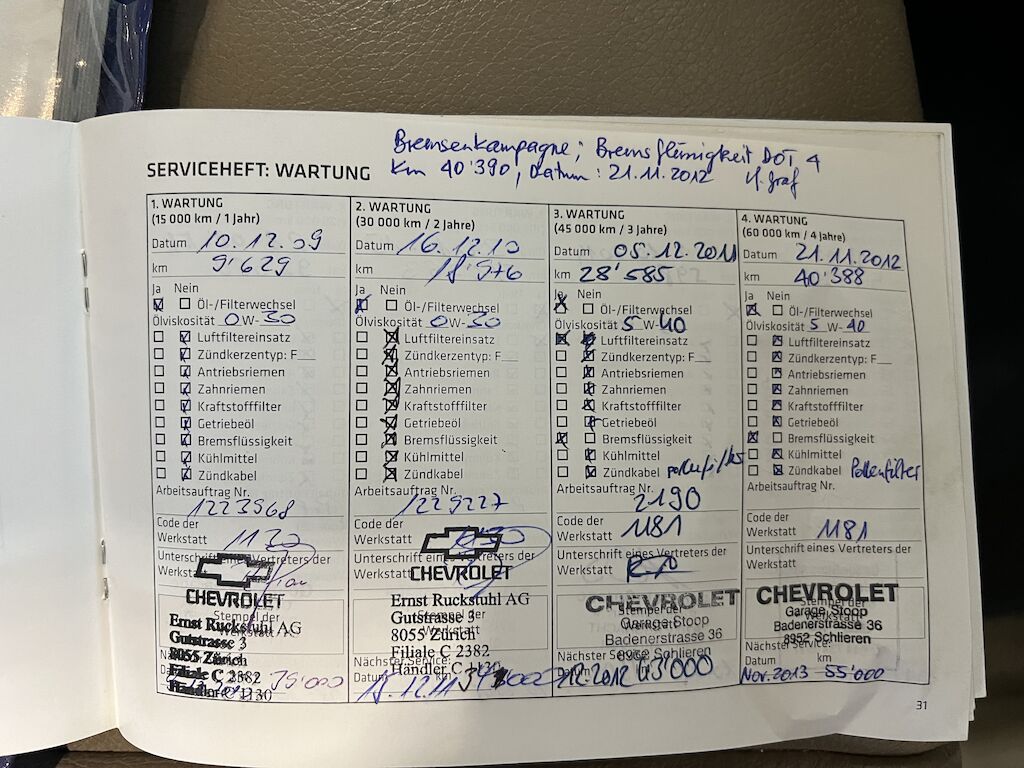 Bremsenkampagne; Bremsflüssigkeit DOT 4
km 40'390, Datum: 21.11.2012 H. Graf
SERVICEHEFT: WARTUNG
1. WARTUNG
(15 000 km / 1 Jahr)
Datum 10.12.09
km 9'629
Ja Nein
Öl-/Filterwechsel
Ölviskosität 0 W-30
Luftfiltereinsatz
Zündkerzentyp: F
Antriebsriemen
Zahnriemen
Kraftstofffilter
Getriebeöl
Bremsflüssigkeit
Kühlmittel
Zündkabel
Arbeitsauftrag Nr.
1223968
Code der
Werkstatt
Unterschrift eines Vertreters der
Werkstatt
CHEVROLET
Stempel der
Werkstatt
Ernst Ruckstuhl AG
Gutstrasse 3
8055 Zürich
Filiale C 2382
Händler C 1130
35'000
2. WARTUNG
(30 000 km / 2 Jahre)
Datum 16.12.10
km 18'976
Ja Nein
Öl-/Filterwechsel
Ölviskosität 0 W-30
Luftfiltereinsatz
Zündkerzentyp: F
Antriebsriemen
Zahnriemen
Kraftstofffilter
Getriebeöl
Bremsflüssigkeit
Kühlmittel
Zündkabel
Arbeitsauftrag Nr.
1229227
Code der
Werkstatt
Unterschrift eines Vertreters der
Werkstatt
CHEVROLET
Ernst Ruckstuhl AG
Gutstrasse 3
Stempel der
8055 Zürich
Filiale C 2382
Händler C 1130
Nächster Service:
Datum km
3. WARTUNG
(45 000 km / 3 Jahre)
Datum 05.12.2011
km 28'585
Ja Nein
Öl-/Filterwechsel
Ölviskosität 5 W-40
Luftfiltereinsatz
Zündkerzentyp: F
Antriebsriemen
Zahnriemen
Kraftstofffilter
Getriebeöl
Bremsflüssigkeit
Kühlmittel
Zündkabel pollenfilter
Arbeitsauftrag Nr.
2190
Code der
Werkstatt 1181
Unterschrift eines Vertreters der
Werkstatt
CHEVROLET
Stempel der
Werkstatt
Garage Stoop
Badenerstrasse 36
8952 Schlieren
Nächster Service:
Datum 12.2012 43'000
4. WARTUNG
(60 000 km / 4 Jahre)
Datum 21.11.2012
km 40'388
Ja Nein
Öl-/Filterwechsel
Ölviskosität 5 W-40
Luftfiltereinsatz
Zündkerzentyp: F
Antriebsriemen
Zahnriemen
Kraftstofffilter
Getriebeöl
Bremsflüssigkeit
Kühlmittel
Zündkabel Pollenfilter
Arbeitsauftrag Nr.
Code der
Werkstatt 1181
Unterschrift eines Vertreters der
Werkstatt
CHEVROLET
Stempel der
Garage Stoop
Badenerstrasse 36
8952 Schlieren
Nächster Service:
Datum km
Nov. 2013 55'000
31